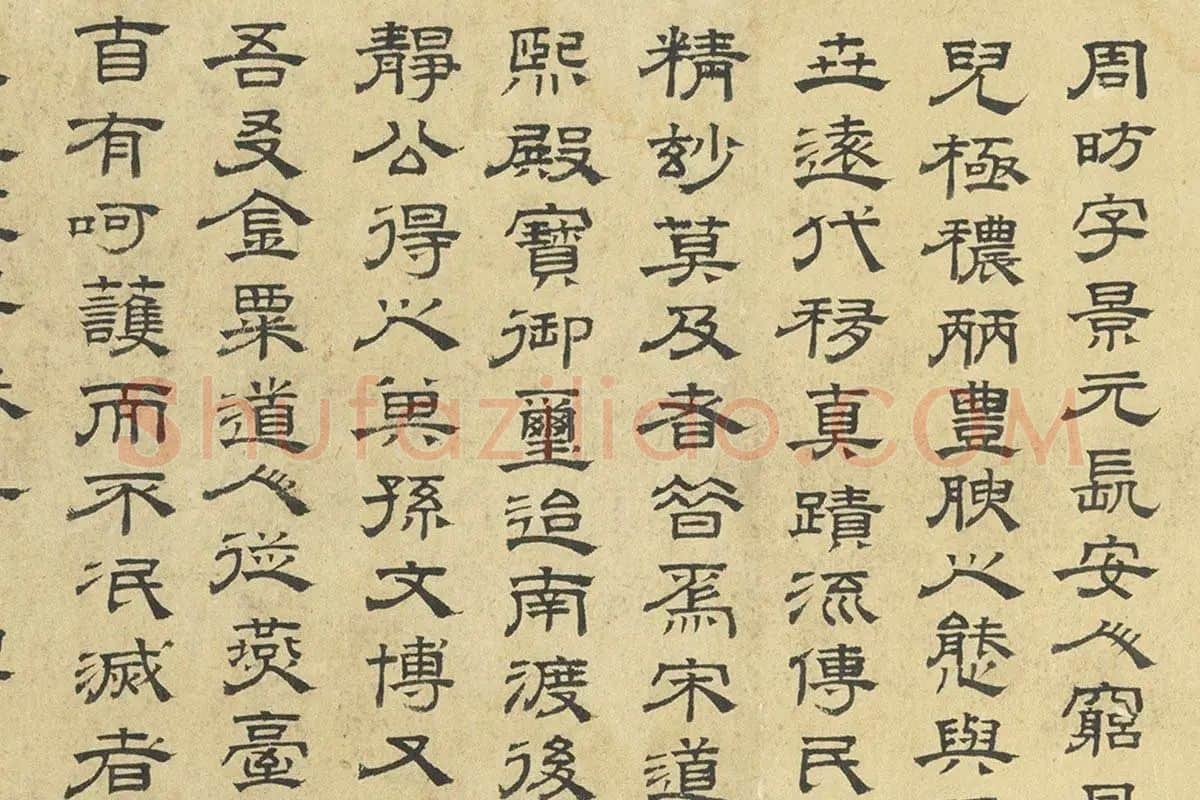 周昉字景元長安人窮
皃極穠丽豐腴之態與
卋遠代移真蹟流傳民
精玅莫及者替焉宋道
熙殿寶御璽迨南渡後
靜公得之其孫文博又
吾友金粟道人從燕臺
自有呵護而不泯滅者
Shufaziliao.COM